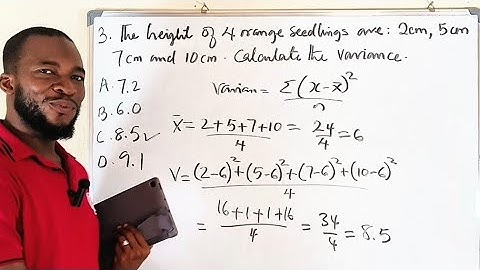 3. The height of 4 orange seedlings are: 2cm, 5cm
7cm and 10cm. Calculate the variance.
A. 7.2
B. 6.0
C. 8.5 ✓
D. 9.1
Varian = Σ(x-x̄)²/n
x̄ = 2+5+7+10/4 = 24/4 = 6
V = (2-6)²+(5-6)²+(7-6)²+(10-6)²/4
= 16+1+1+16/4 = 34/4 = 8.5